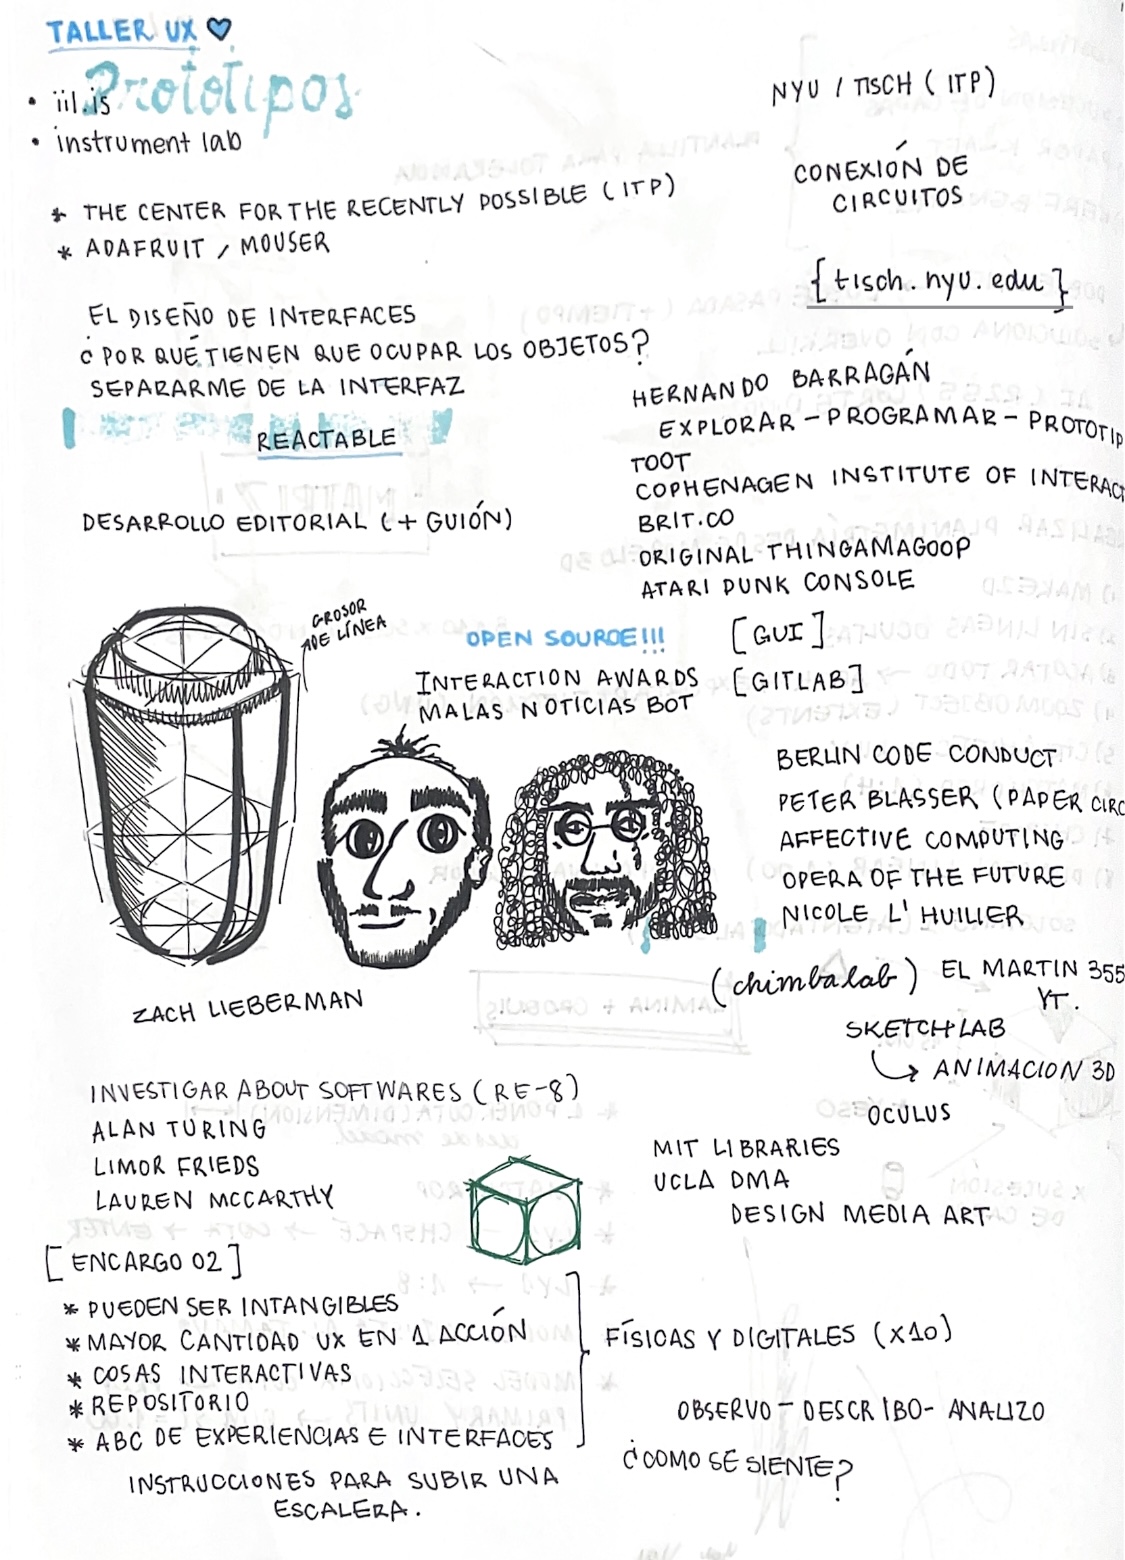 TALLER UX
Prototipos
• iil.is
• instrument lab
* THE CENTER FOR THE RECENTLY POSSIBLE (ITP)
* ADAFRUIT / MOUSER
NYU / TISCH (ITP)
CONEXIÓN DE
CIRCUITOS
{tisch.nyu.edu}
EL DISEÑO DE INTERFACES
¿POR QUÉ TIENEN QUE OCUPAR LOS OBJETOS?
SEPARARME DE LA INTERFAZ
REACTABLE
DESARROLLO EDITORIAL (+ GUIÓN)
HERNANDO BARRAGÁN
EXPLORAR - PROGRAMAR - PROTOTIP
TOOT
COPHENAGEN INSTITUTE OF INTERAC
BRIT.CO
ORIGINAL THINGAMAGOOP
ATARI PUNK CONSOLE
GROSOR
DE LÍNEA
OPEN SOURCE!!!
[GUI]
INTERACTION AWARDS
[GITLAB]
MALAS NOTICIAS BOT
BERLIN CODE CONDUCT
PETER BLASSER (PAPER CIRC
AFFECTIVE COMPUTING
OPERA OF THE FUTURE
NICOLE L'HUILIER
(chimbalab) EL MARTIN 355
YT.
ZACH LIEBERMAN
SKETCHLAB
ANIMACION 3D
OCULUS
INVESTIGAR ABOUT SOFTWARES (RE-8)
ALAN TURING
LIMOR FRIEDS
LAUREN MCCARTHY
MIT LIBRARIES
UCLA DMA
DESIGN MEDIA ART
[ENCARGO 02]
* PUEDEN SER INTANGIBLES
* MAYOR CANTIDAD UX EN 1 ACCIÓN
* COSAS INTERACTIVAS
* REPOSITORIO
* ABC DE EXPERIENCIAS E INTERFACES
FÍSICAS Y DIGITALES (X10)
OBSERVO - DESCRIBO - ANALIZO
¿COMO SE SIENTE?
INSTRUCCIONES PARA SUBIR UNA
ESCALERA.